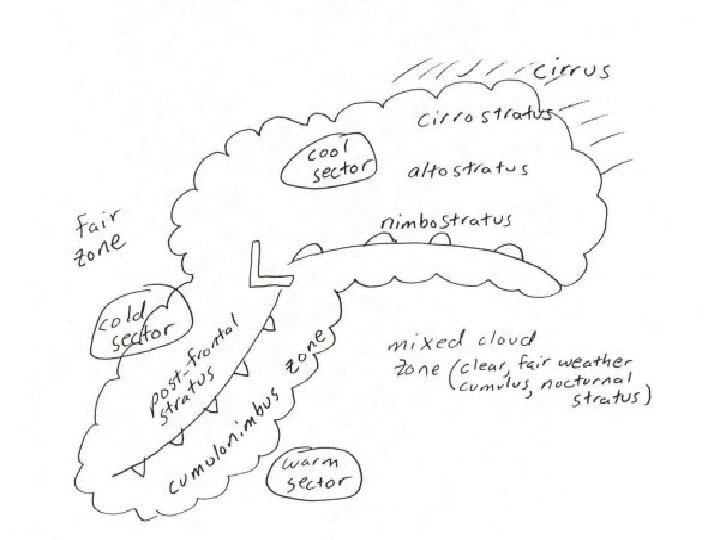 cirrus
cirrostratus
cool
sector
altostratus
nimbostratus
fair
zone
L
cold
sector
post-frontal
stratus
cumulonimbus zone
mixed cloud
zone (clear, fair weather
cumulus, nocturnal
stratus)
warm
sector